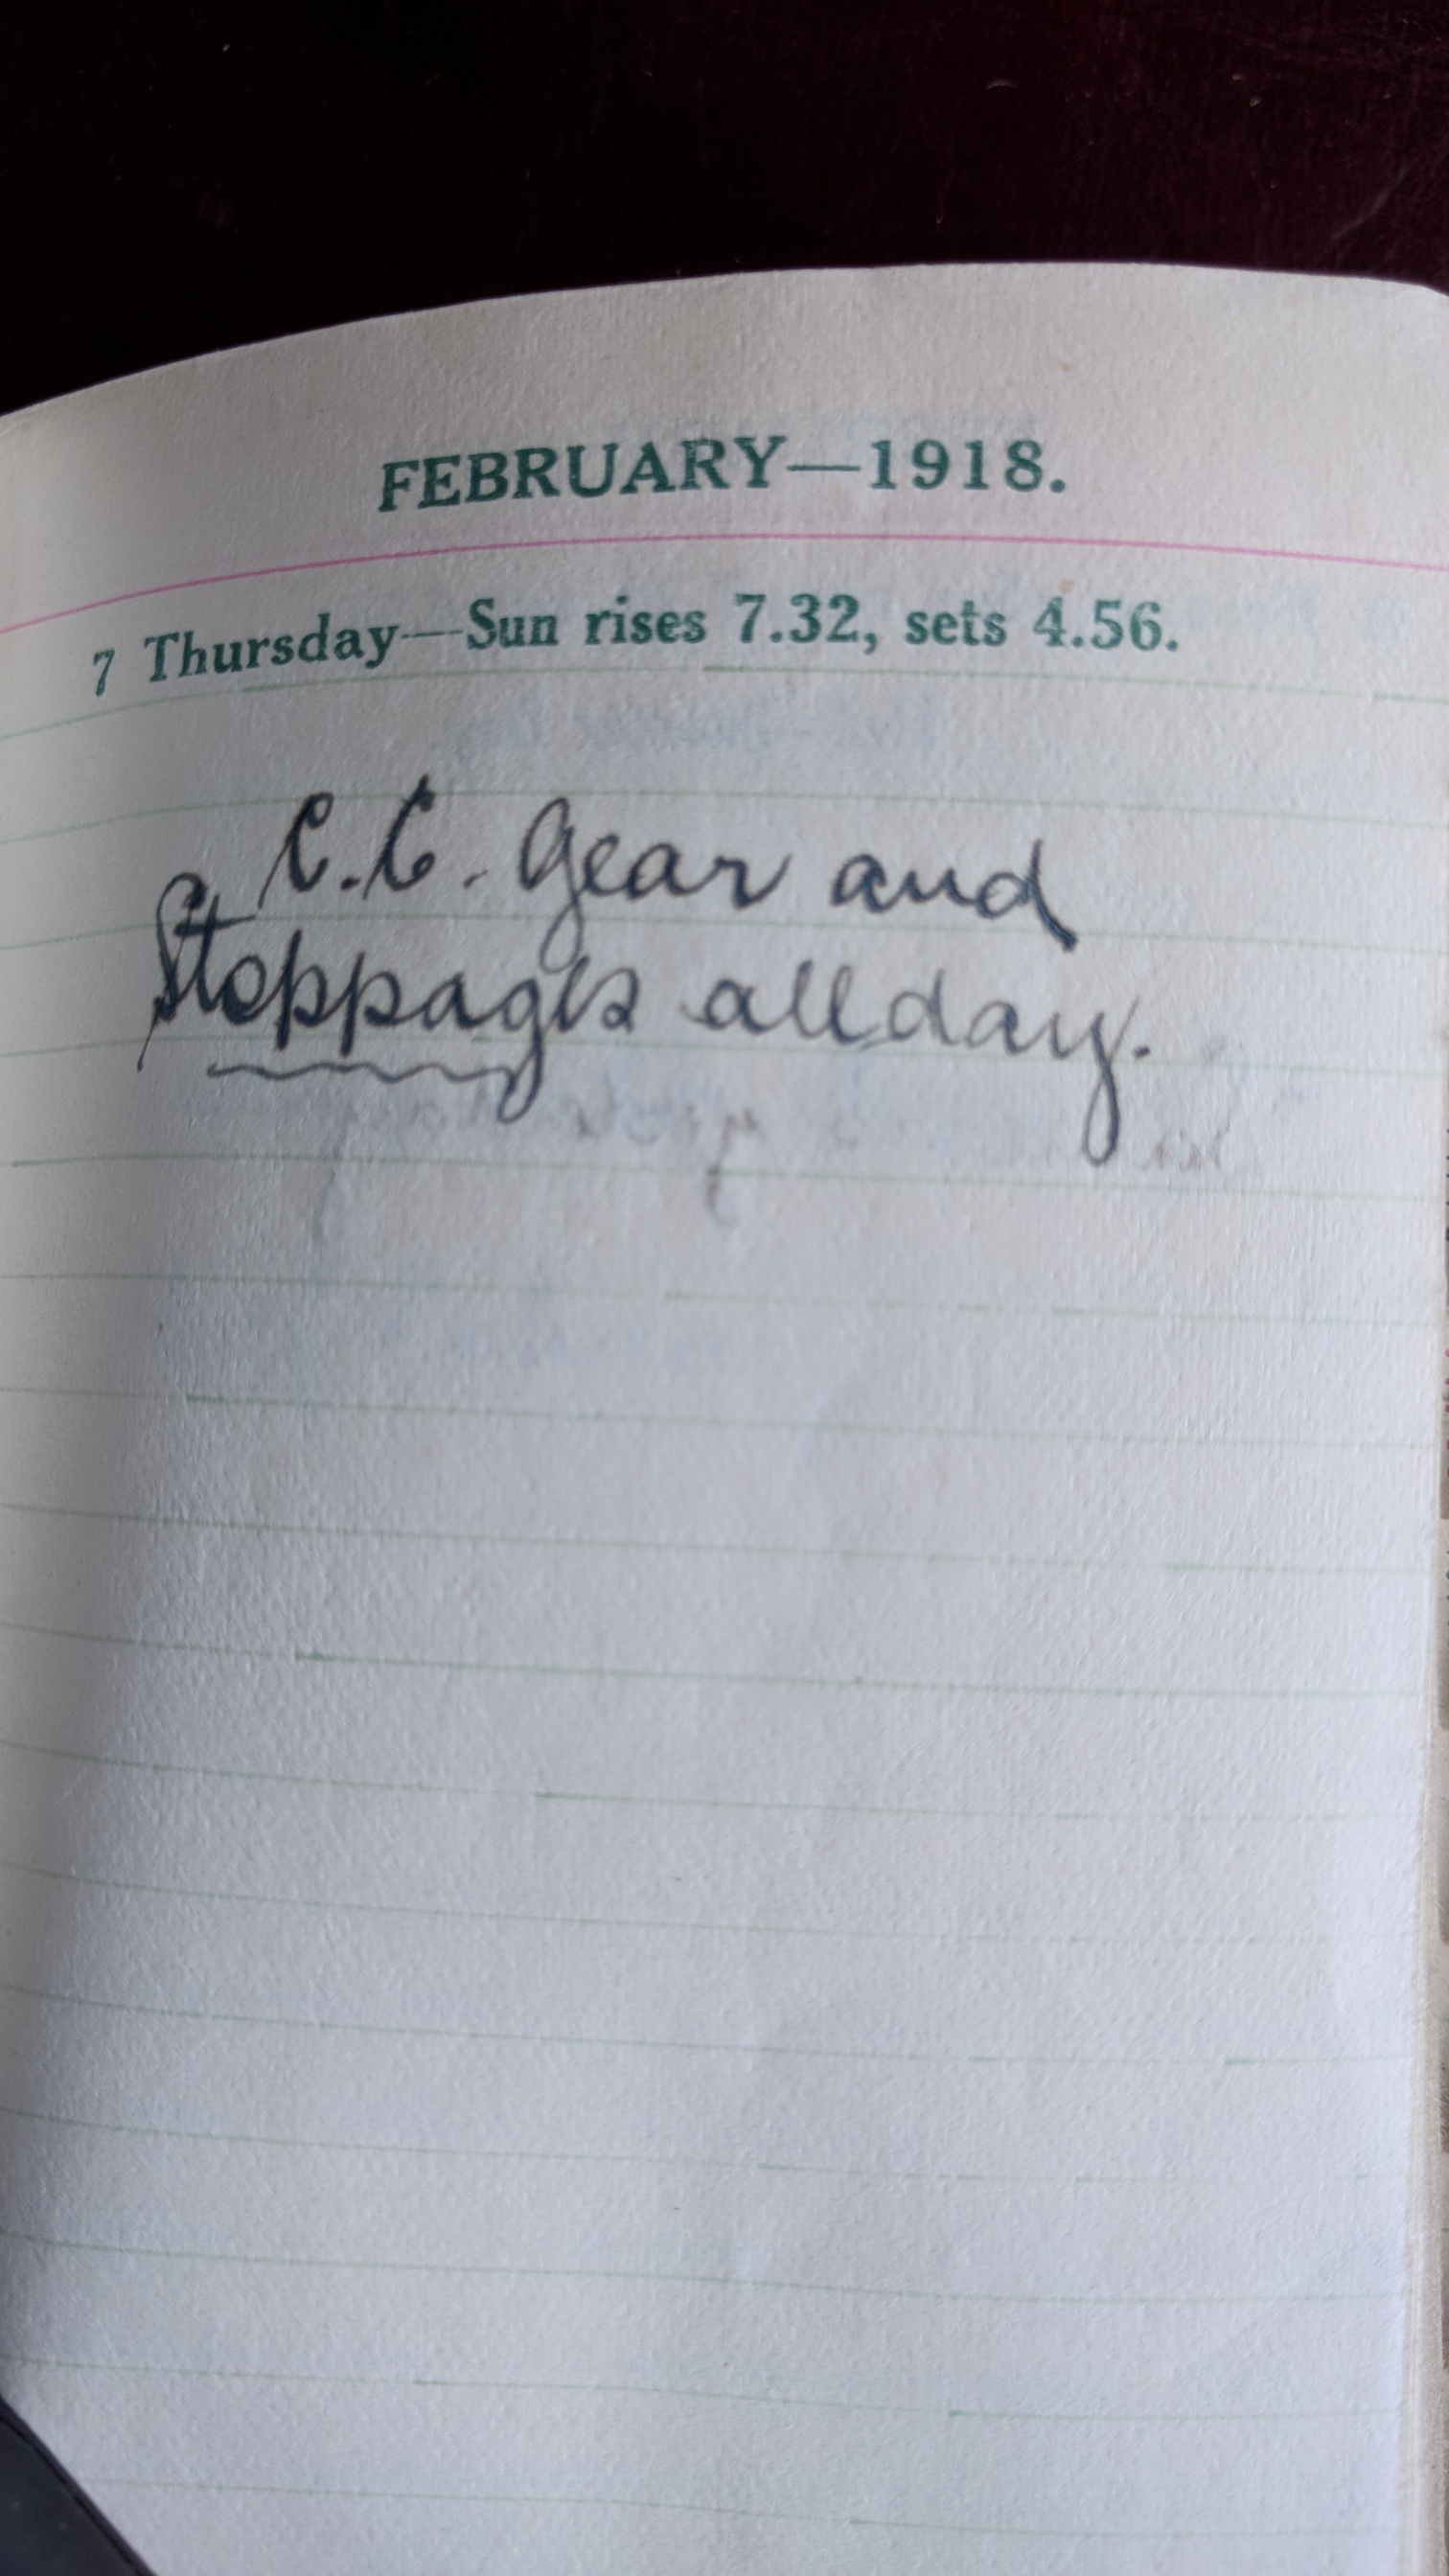 FEBRUARY—1918.
7 Thursday—Sun rises 7.32, sets 4.56.
C.C. Gear and
Stoppages all day.